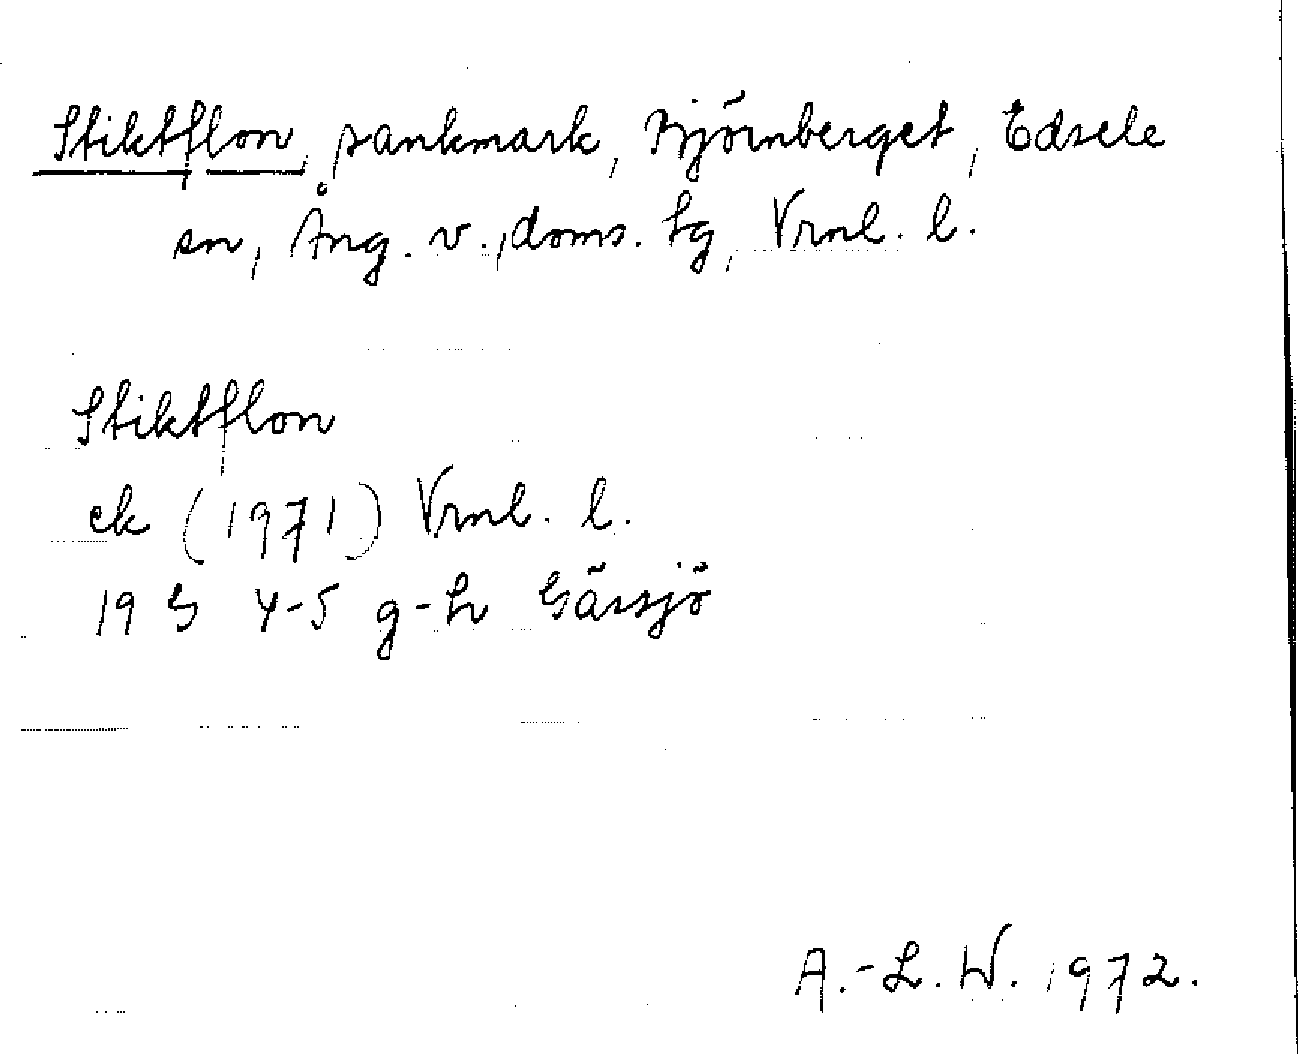 Stiktflon, sankmark, Björnberget, Edsele
sn, Ång. v., doms. tg, Vrnl. l.
Stiktflon
ek (1971) Vrnl. l.
19 G 4-5 g-h Gärsjö
A.-L. W. 1972.